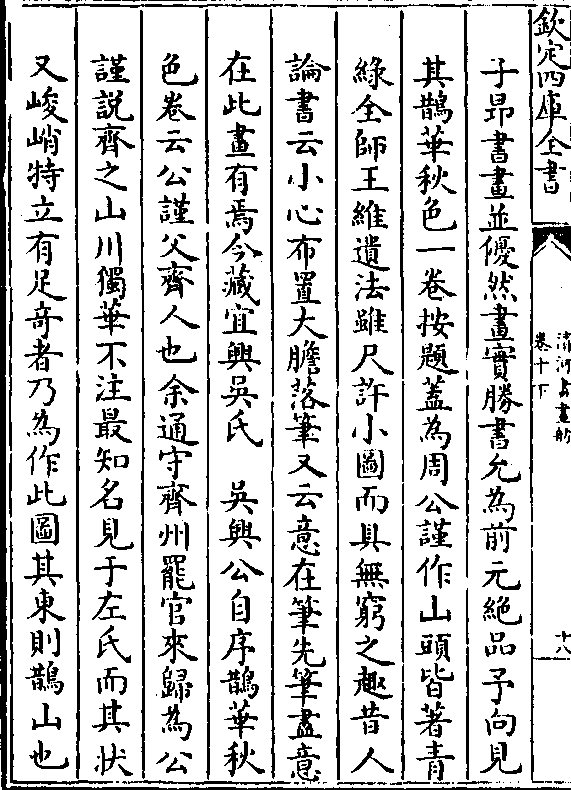 欽定四庫全書
清河書畫舫
卷十下
十八
子昂書畫並優然畫實勝書允為前元絶品予向見
其鵲華秋色一卷按題蓋為周公謹作山頭皆著青
綠全師王維遺法雖尺許小圖而具無窮之趣昔人
論書云小心布置大膽落筆又云意在筆先筆盡意
在此畫有焉今藏宜興吳氏　吳興公自序鵲華秋
色卷云公謹父齊人也余通守齊州罷官來歸為公
謹説齊之山川獨華不注最知名見于左氏而其狀
又峻峭特立有足奇者乃為作此圖其東則鵲山也